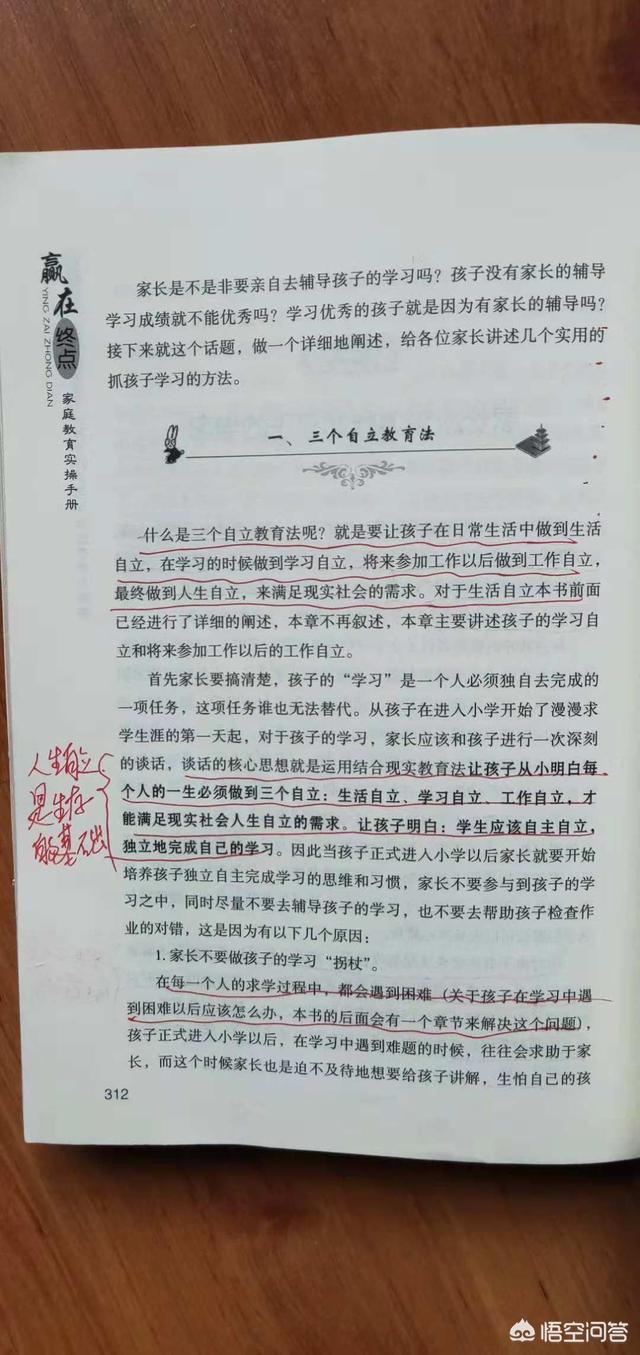 赢在终点
YING ZAI ZHONG DIAN
家庭教育实操手册
家长是不是非要亲自去辅导孩子的学习吗？孩子没有家长的辅导
学习成绩就不能优秀吗？学习优秀的孩子就是因为有家长的辅导吗？
接下来就这个话题，做一个详细地阐述，给各位家长讲述几个实用的
抓孩子学习的方法。
一、三个自立教育法
什么是三个自立教育法呢？就是要让孩子在日常生活中做到生活
自立，在学习的时候做到学习自立，将来参加工作以后做到工作自立，
最终做到人生自立，来满足现实社会的需求。对于生活自立本书前面
已经进行了详细的阐述，本章不再叙述，本章主要讲述孩子的学习自
立和将来参加工作以后的工作自立。
首先家长要搞清楚，孩子的“学习”是一个人必须独自去完成的
一项任务，这项任务谁也无法替代。从孩子在进入小学开始了漫漫求
学生涯的第一天起，对于孩子的学习，家长应该和孩子进行一次深刻
的谈话，谈话的核心思想就是运用结合现实教育法让孩子从小明白每
个人的一生必须做到三个自立：生活自立、学习自立、工作自立，才
能满足现实社会人生自立的需求。让孩子明白：学生应该自主自立，
独立地完成自己的学习。因此当孩子正式进入小学以后家长就要开始
培养孩子独立自主完成学习的思维和习惯，家长不要参与到孩子的学
习之中，同时尽量不要去辅导孩子的学习，也不要去帮助孩子检查作
业的对错，这是因为有以下几个原因：
1. 家长不要做孩子的学习“拐杖”。
在每一个人的求学过程中，都会遇到困难（关于孩子在学习中遇
到困难以后应该怎么办，本书的后面会有一个章节来解决这个问题），
孩子正式进入小学以后，在学习中遇到难题的时候，往往会求助于家
长，而这个时候家长也是迫不及待地想要给孩子讲解，生怕自己的孩
312
人生自立
是生存
的基础
悟空问答